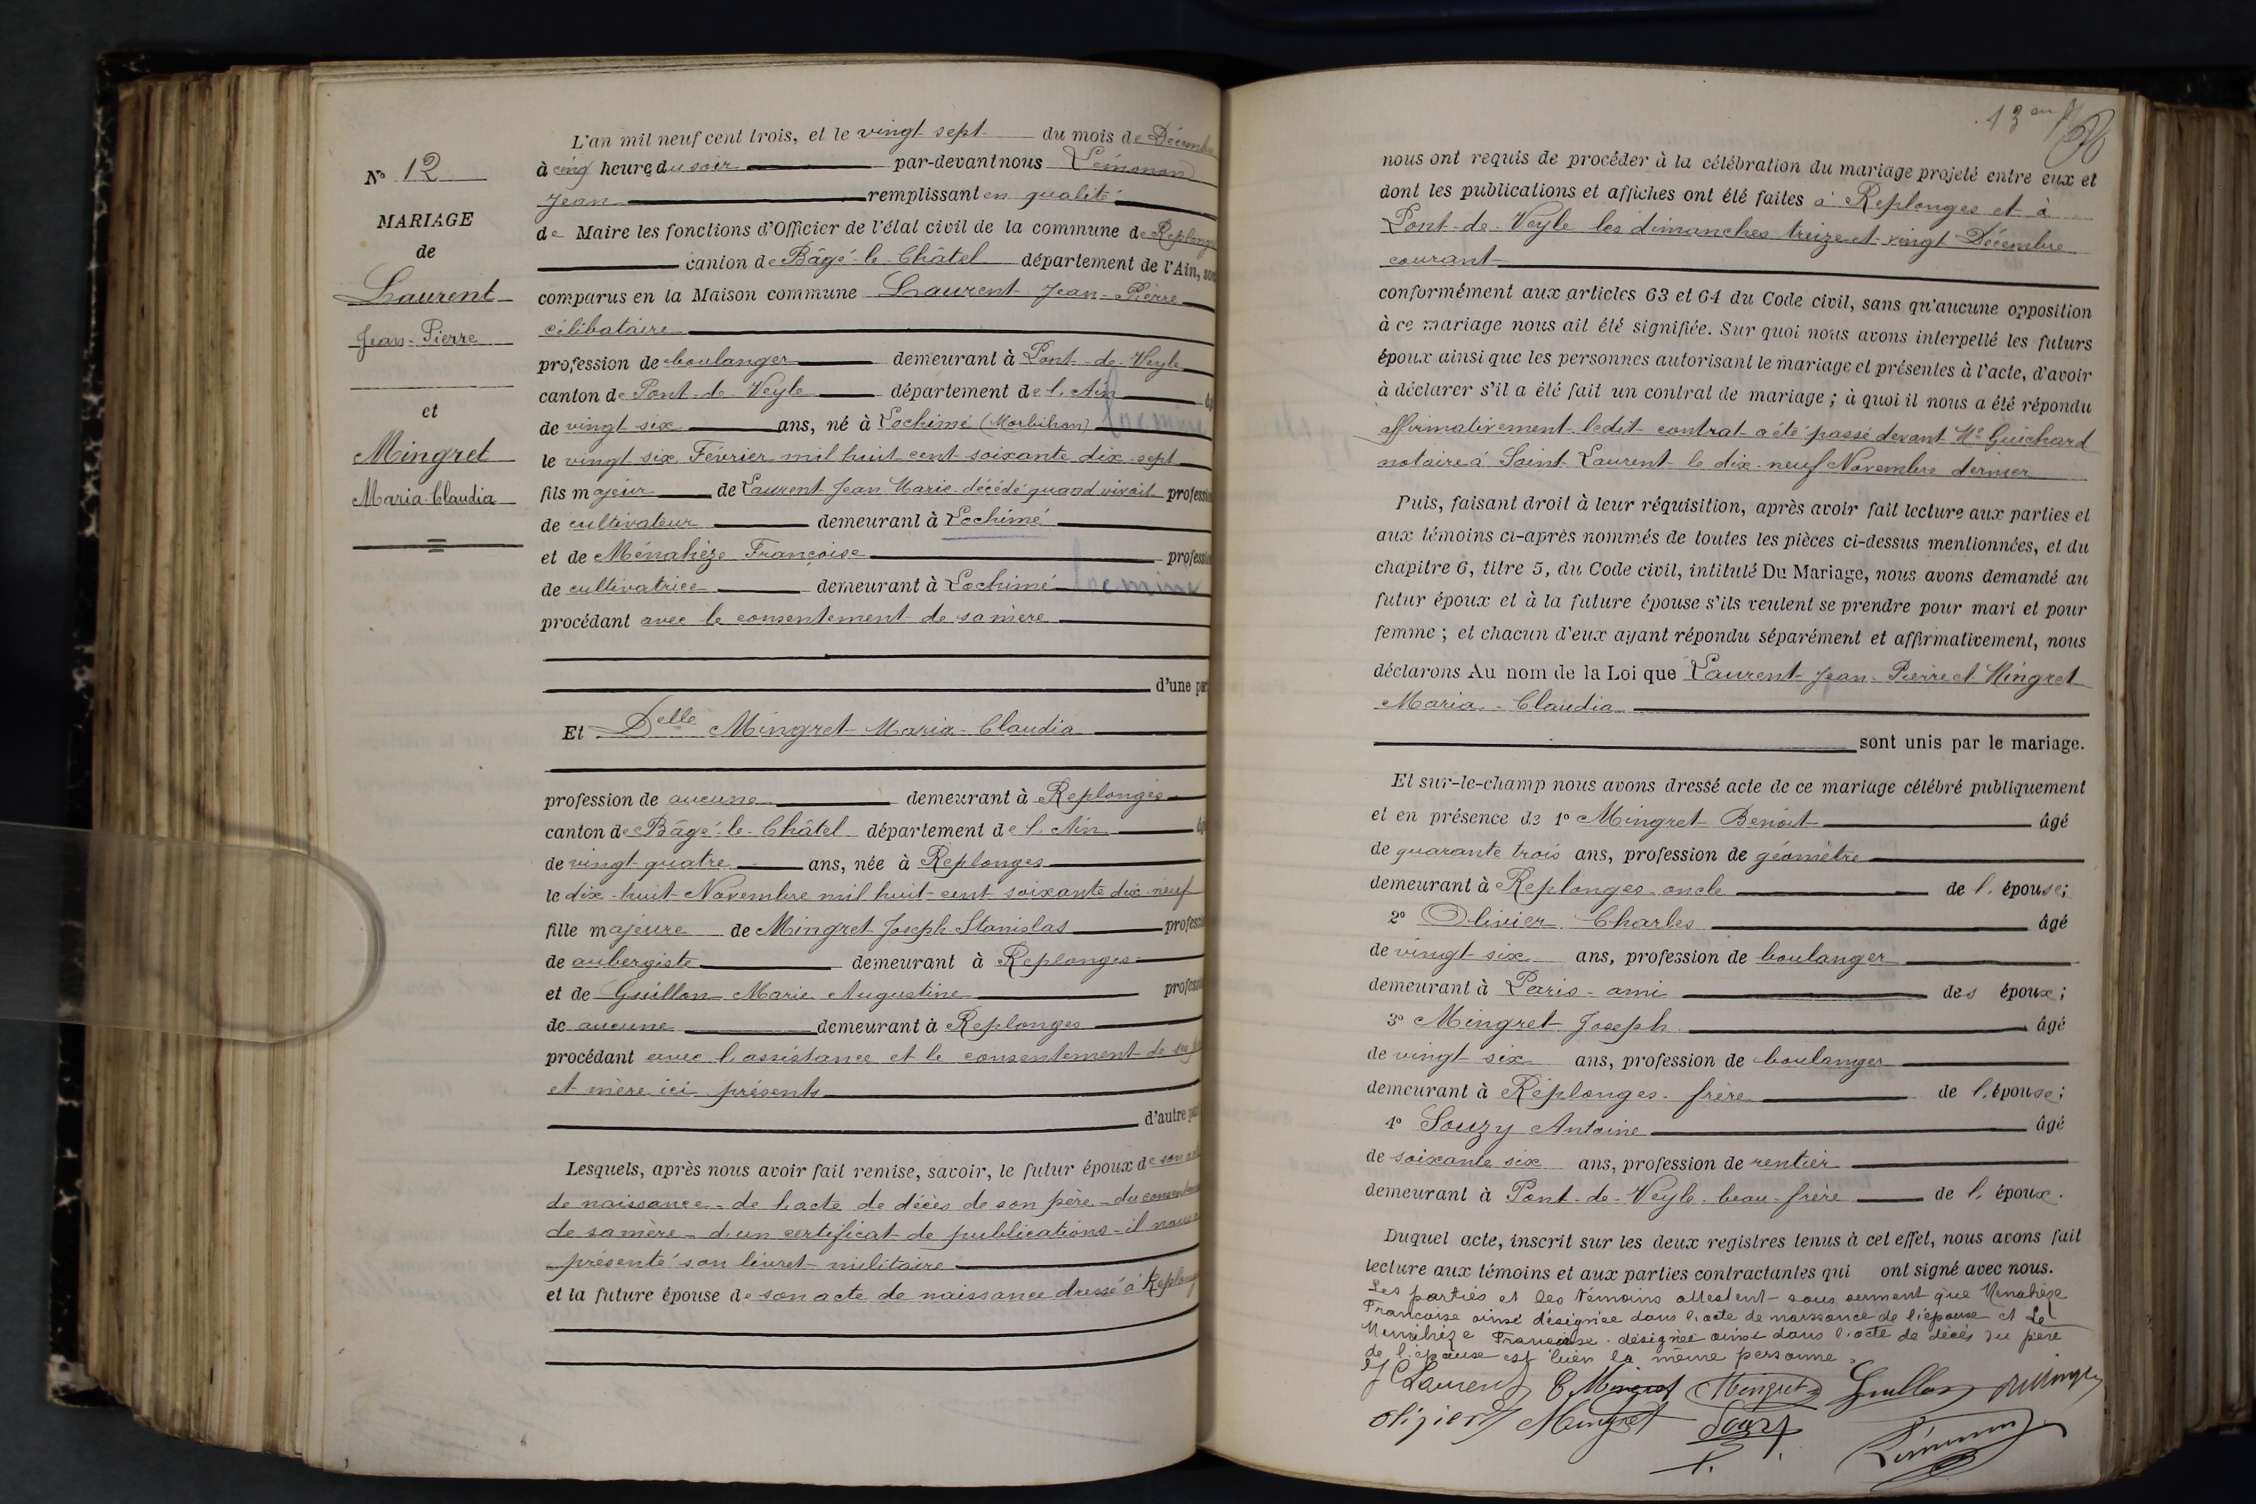 N° 12
MARIAGE
de
Laurent
Jean-Pierre
et
Mingret
Maria-Claudia
L'an mil neuf cent trois, et le vingt sept du mois de Décembre
à cinq heures du soir par-devant nous Lémonon
Jean remplissant en qualité
de Maire les fonctions d'Officier de l'état civil de la commune de Replonges
canton de Bâgé-le-Châtel département de l'Ain, sont
comparus en la Maison commune Laurent Jean-Pierre
célibataire
profession de boulanger demeurant à Pont-de-Veyle
canton de Pont-de-Veyle département de l'Ain
de vingt six ans, né à Lochimé (Morbihan)
le vingt six Février mil huit cent soixante dix-sept
fils majeur de Laurent Jean Marie décédé quand vivait profession
de cultivateur demeurant à Lochimé
et de Ménahèze Françoise profession
de cultivatrice demeurant à Lochimé
procédant avec le consentement de sa mère
d'une part
Et Delle Mingret Maria-Claudia
profession de aucune demeurant à Replonges
canton de Bâgé-le-Châtel département de l'Ain
de vingt-quatre ans, née à Replonges
le dix-huit Novembre mil huit-cent soixante dix-neuf
fille majeure de Mingret Joseph Stanislas profession
de aubergiste demeurant à Replonges
et de Guillon Marie Augustine profession
de aucune demeurant à Replonges
procédant avec l'assistance et le consentement de ses
et mère ici présents
d'autre part
Lesquels, après nous avoir fait remise, savoir, le futur époux de son acte
de naissance - de l'acte de décès de son père - du consentement
de sa mère - d'un certificat de publications - il nous a
présenté son livret militaire
et la future épouse de son acte de naissance dressé à Replonges
nous ont requis de procéder à la célébration du mariage projeté entre eux et
dont les publications et affiches ont été faites à Replonges et à
Pont-de-Veyle les dimanches treize et vingt Décembre
courant
conformément aux articles 63 et 64 du Code civil, sans qu'aucune opposition
à ce mariage nous ait été signifiée. Sur quoi nous avons interpellé les futurs
époux ainsi que les personnes autorisant le mariage et présentes à l'acte, d'avoir
à déclarer s'il a été fait un contrat de mariage ; à quoi il nous a été répondu
affirmativement ledit contrat a été passé devant Me Guichard
notaire à Saint-Laurent le dix-neuf Novembre dernier
Puis, faisant droit à leur réquisition, après avoir fait lecture aux parties et
aux témoins ci-après nommés de toutes les pièces ci-dessus mentionnées, et du
chapitre 6, titre 5, du Code civil, intitulé Du Mariage, nous avons demandé au
futur époux et à la future épouse s'ils veulent se prendre pour mari et pour
femme ; et chacun d'eux ayant répondu séparément et affirmativement, nous
déclarons Au nom de la Loi que Laurent Jean-Pierre et Mingret
Maria-Claudia
sont unis par le mariage.
Et sur-le-champ nous avons dressé acte de ce mariage célébré publiquement
et en présence de 1° Mingret Benoit âgé
de quarante trois ans, profession de géomètre
demeurant à Replonges - oncle de l'épouse;
2° Olivier Charles âgé
de vingt six ans, profession de boulanger
demeurant à Paris - ami des époux;
3° Mingret Joseph âgé
de vingt six ans, profession de boulanger
demeurant à Replonges - frère de l'épouse;
4° Souzy Antoine âgé
de soixante six ans, profession de rentier
demeurant à Pont-de-Veyle beau-frère de l'époux.
Duquel acte, inscrit sur les deux registres tenus à cet effet, nous avons fait
lecture aux témoins et aux parties contractantes qui ont signé avec nous.
Les parties et les témoins attestent sous serment que Menahèze
Françoise ainsi désignée dans l'acte de naissance de l'époux et Le
Menahèze Françoise désignée ainsi dans l'acte de décès du père
de l'époux est bien la même personne.
J Laurent C Mingret Mingret Guillon Mingret
Olivier Mingret Souzy Lémonon